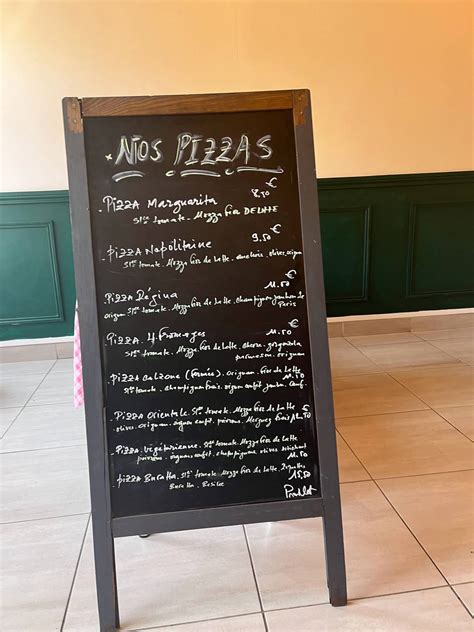 NOS PIZZAS
€
PIZZA Marguarita 8.50
Sce tomate. Mozza fior DE LATTE
€
PIZZA Napolitaine 9.50
Sce tomate. Mozza fior de latte. anchois. olives. origan
€
PIZZA Régina 11.50
origan Sce tomate. Mozza fior de latte. champignon. jambon de
Paris
€
PIZZA 4 Fromages 11.50
Sce tomate. Mozza fior de latte. chèvre. gorgonzola
parmesan. origan
PIZZA Calzone (fermée). origan. fior de latte 11.50
Sce tomate. champignon frais. oignon confit. jambon
PIZZA Orientale. Sce tomate. Mozza fior de latte 11.50
olives. origan. confit. poivrons. Merguez
PIZZA Végétarienne. Sce tomate. Mozza fior de latte
poivrons. oignons confits. champignons olives 11.50
PIZZA Buratta. Sce tomate. Mozza fior de latte. 15.50
Buratta. Basilic